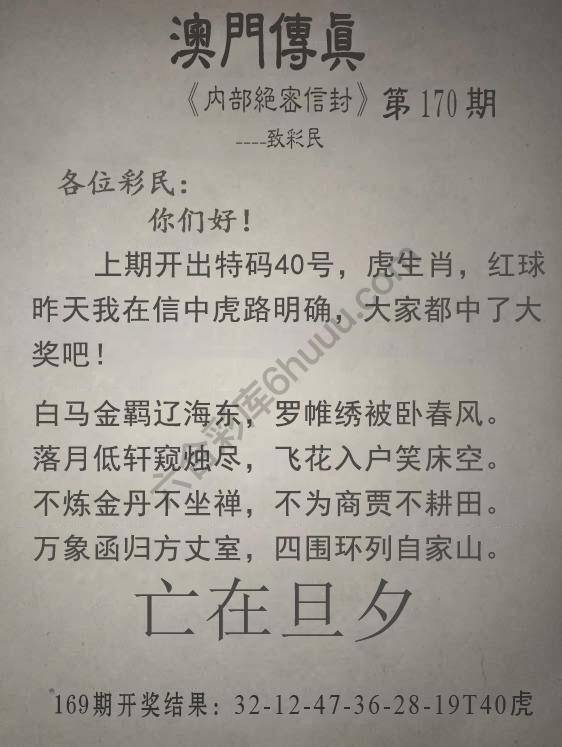 澳門傳真
《内部絕密信封》第170期
----致彩民
各位彩民：
你们好！
上期开出特码40号，虎生肖，红球
昨天我在信中虎路明确，大家都中了大
奖吧！
白马金羁辽海东，罗帷绣被卧春风。
落月低轩窥烛尽，飞花入户笑床空。
不炼金丹不坐禅，不为商贾不耕田。
万象函归方丈室，四围环列自家山。
亡在旦夕
169期开奖结果：32-12-47-36-28-19T40虎
六合彩库6huuu.com